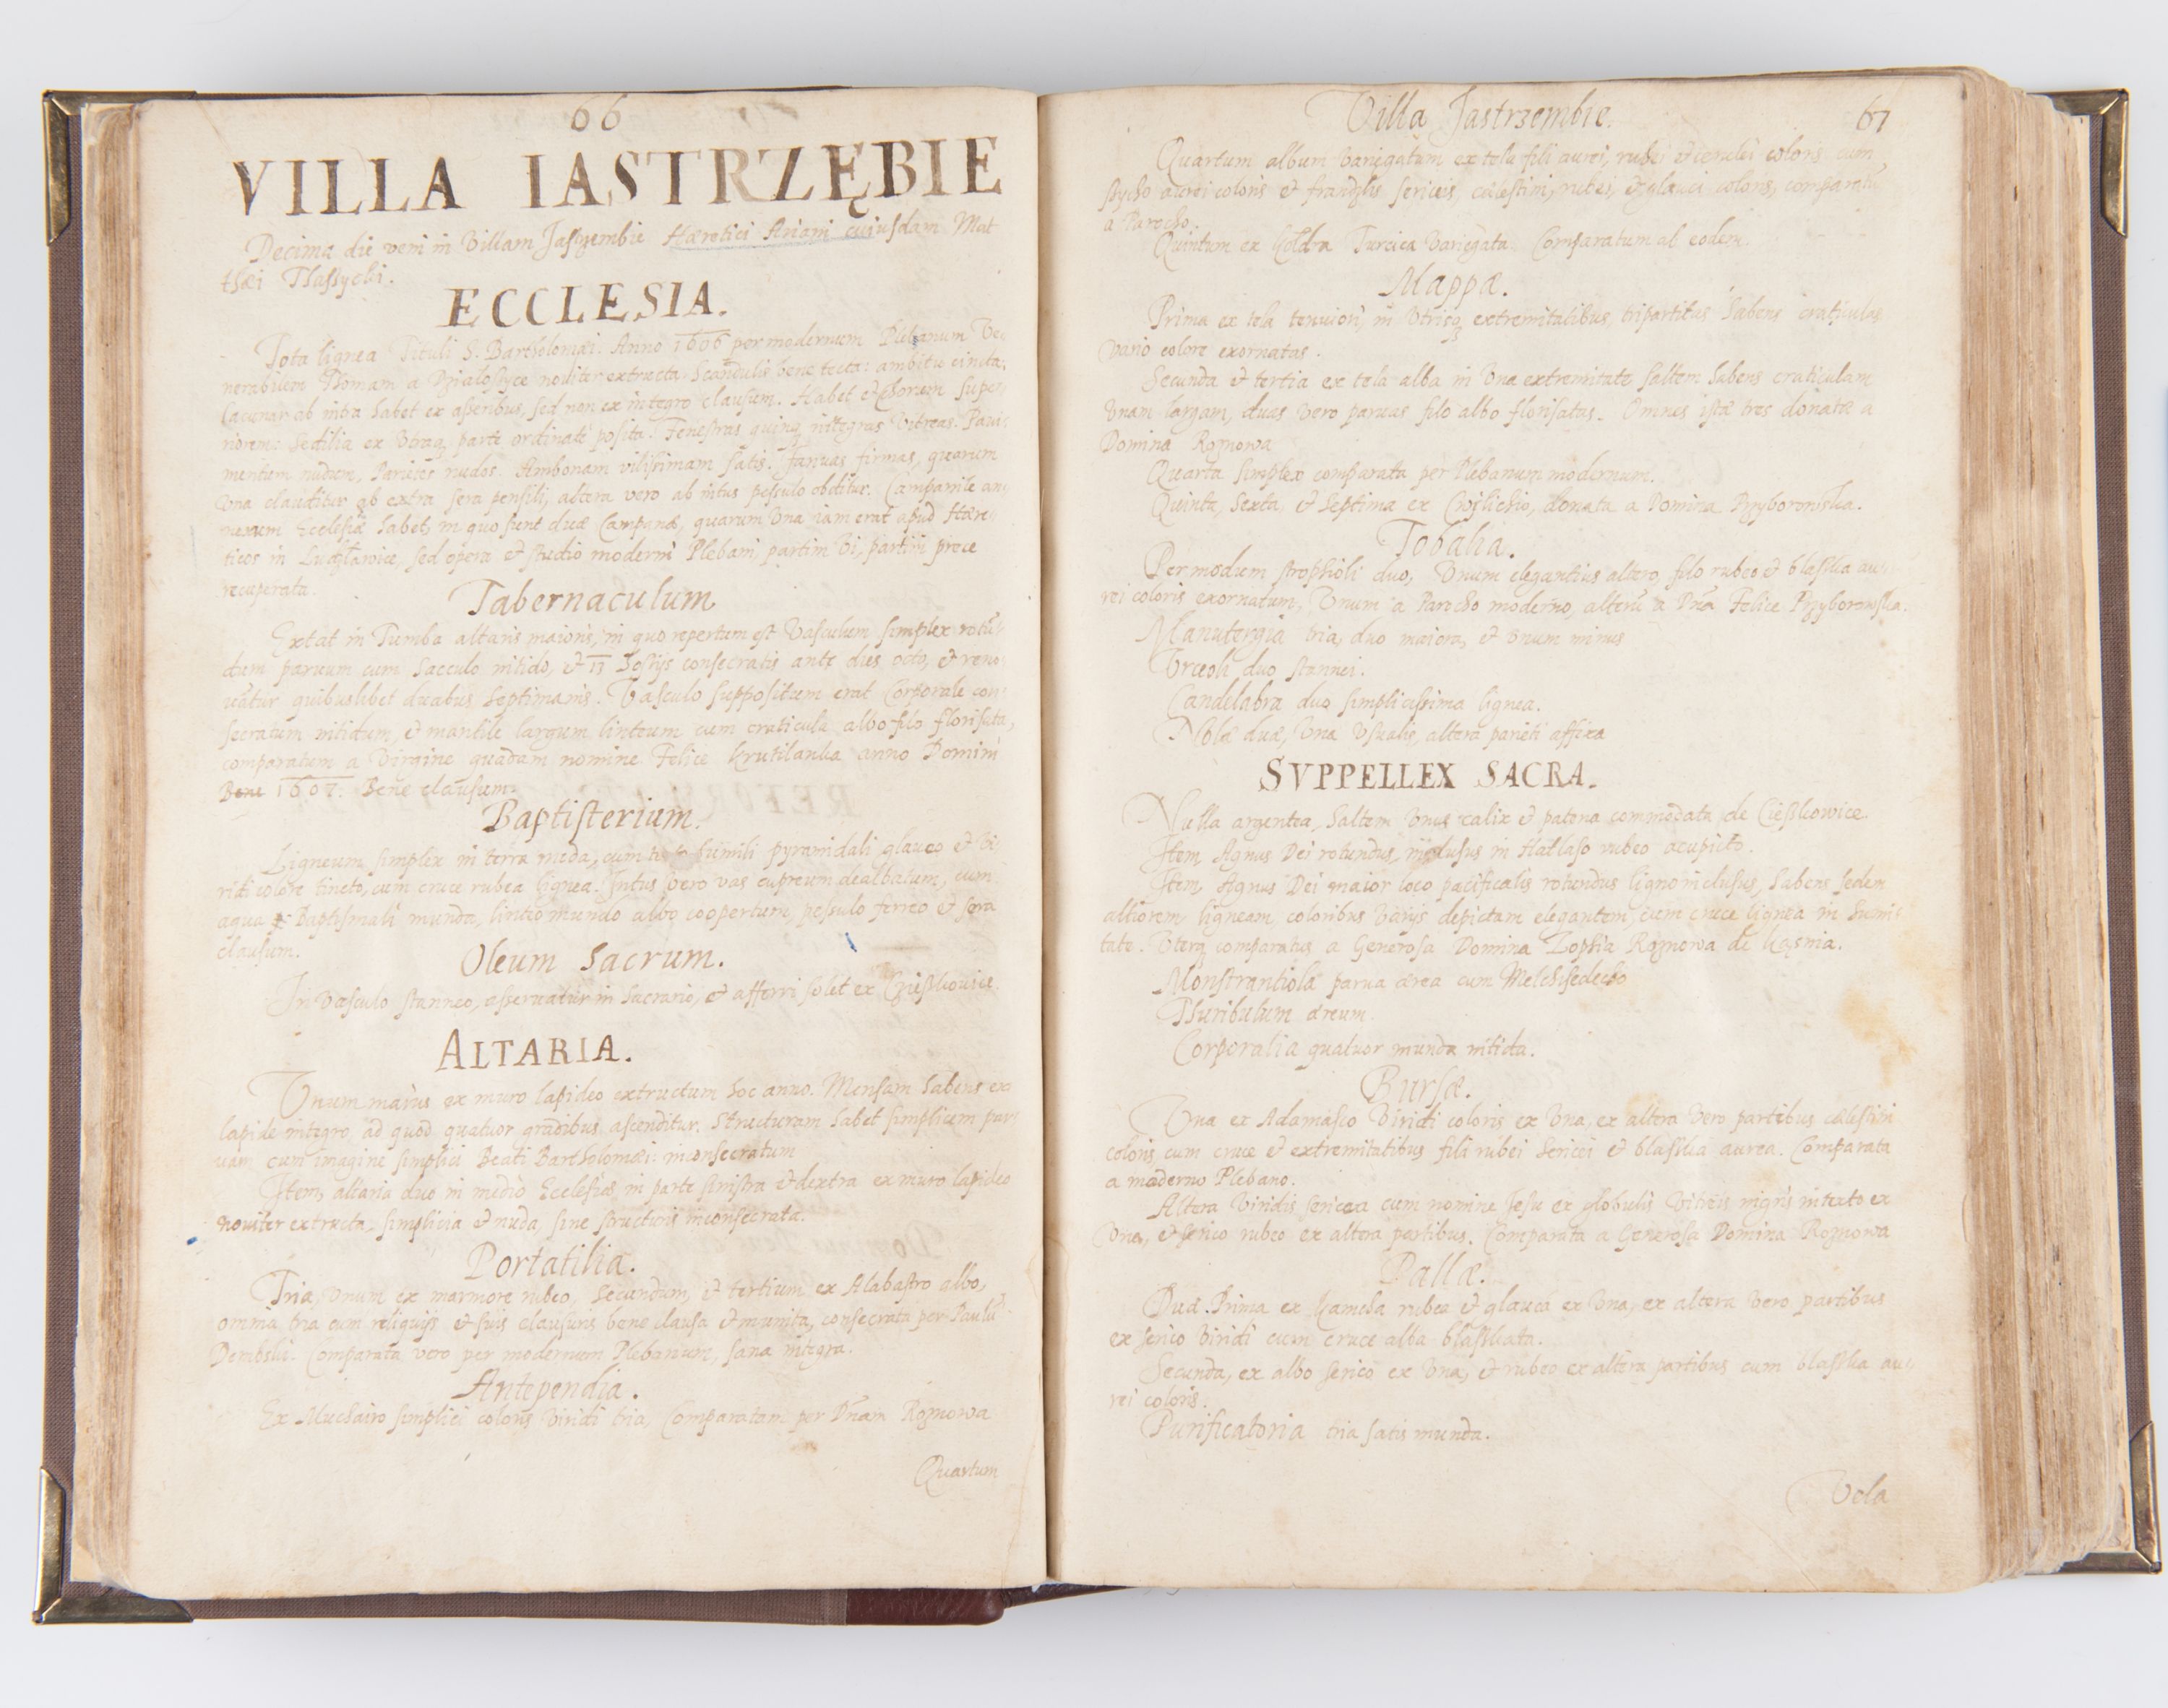 66
VILLA IASTRZĘBIE
Decima die veni in Villam Jastrzembie Hæretici Ariani cuiusdam Mat
thæi Tlassycki.
ECCLESIA.
Tota lignea Tituli S. Bartholomæi. Anno 1606 per modernum Plebanum Ve
nerabilem Thomam a noviter extracta. Scandulis bene tecta: ambitu cincta;
Lacunar ab intra habet ex asseribus, sed non ex integro clausum. Habet et chorum supe
riorem. Sedilia ex utraq parte ordinate posita. Fenestras quinq integras vitreas. Pavi
mentum nudum, Parietes nudos. Ambonam vilissimam satis. Januas firmas, quarum
una clauditur ab extra sera pensili, altera vero ab intus pessulo obditur. Campanile an
nexum Ecclesiæ habet, in quo sunt duæ Campanæ, quarum una iam erat apud Hære
ticos in sed opera et studio moderni Plebani, partim vi, partim prece
recuperata.
Tabernaculum
Extat in Tumba altaris maioris, in quo repertum est Vasculum simplex rotu
dum parvum cum sacculo nitido, et 13 hostijs consecratis ante dies octo, et reno
vatur quibuslibet duabus septimanis. Vasculo suppositum erat Corporale con
secratum nitidum, et mantile largum linteum cum craticula albo filo florisata,
comparatum a Virgine quadam nomine Felice Krutilanka anno Domini
Bene 1607. Bene clausum.
Baptisterium.
Ligneum simplex in terra humili pyramidali glauco et vi
ridi colore tincto, cum cruce rubea lignea. Intus vero vas cupreum dealbatum, cum
aqua Baptismali munda, linteo mundo albo coopertum, pessulo ferreo et sera
clausum.
Oleum Sacrum.
In Vasculo stanneo, asservatur in Sacrario, et afferri solet ex
ALTARIA.
Unum maius ex muro lapideo extructum hoc anno. Mensam habens ex
lapide integro, ad quod quatuor gradibus ascenditur. Structuram habet simplicem par
vam cum imagine simplici Beati Bartholomæi: inconsecratum
Item, altaria duo in medio Ecclesiæ, in parte sinistra et dextra ex muro lapideo
noviter extructa, simplicia et nuda, sine structuris inconsecrata.
Portatilia.
Tria, unum ex marmore rubeo, secundum, et tertium ex Alabastro albo,
omnia tria cum reliquijs et suis clausuris bene clausa et munita, consecrata per Paulū
Dembski. Comparata vero per modernum Plebanum, sana integra.
Antependia.
Ex Muchairo simplici coloris viridi tria, Comparatam per Dnam Rożnowa
Quartum
Villa Jastrzembie. 67
Quartum album variegatum ex tela fili aurei, rubei et cerulei coloris cum
aurei coloris et frandzlis sericeis, cælestini, rubei, et glauci coloris, comparatū
a Parocho.
Quintum ex Koldra Turcica variegata. Comparatum ab eodem.
Mappæ.
Prima ex tela tenuiori, in utrisq extremitatibus tripartitus habens craticulas
vario colore exornatas.
Secunda et tertia ex tela alba in una extremitate saltem habens craticulam
unam largam, duas vero parvas filo albo florisatas. Omnes istæ tres donatæ a
Domina Rożnowa
Quarta simplex comparata per Plebanum modernum.
Quinta, Sexta, et Septima ex donata a Domina Przyborowska.
Tobalia.
Per modum strophioli duo, Unum elegantius altero, filo rubeo et blaska au
rei coloris exornatum, Unum a Parocho moderno, alterū a Dna Felice Przyborowska.
Manutergia tria, duo maiora, et unum minus
Urceoli duo stannei.
Candelabra duo simplicissima lignea.
Nolæ duæ, una usualis, altera parieti affixa
SVPPELLEX SACRA.
Nulla argentea, saltem unus calix et patena commodata de Cięszkowice.
Item Agnus Dei rotundus, inclusus in Hatlaso rubeo acupicto.
Item, Agnus Dei maior loco pacificalis rotundus ligno inclusus, habens sedem
altiorem ligneam coloribus varijs depictam elegantem, cum cruce lignea in sumi
tate. Uterq comparatus a Generosa Domina Zophia Rożnowa de Kąsnia.
Monstrantiola parva ærea cum Melchisedecho
Thuribulum æreum
Corporalia quatuor munda nitida.
Bursæ.
Una ex Adamasco viridi coloris ex una, ex altera vero partibus cælestini
coloris cum cruce et extremitatibus fili rubei sericei et blaskia aurea. Comparata
a moderno Plebano.
Altera viridis sericea cum nomine Jesu ex globulis vitreis nigris intexto ex
una, et serico rubeo ex altera partibus. Comparata a Generosa Domina Rożnowa
Pallæ.
Duæ. Prima ex Kamcha rubea et glauca ex una, ex altera vero partibus
ex serico viridi cum cruce alba blaskata.
Secunda, ex albo serico ex una, et rubeo ex altera partibus cum blaska au
rei coloris.
Purificatoria tria satis munda.
Vela